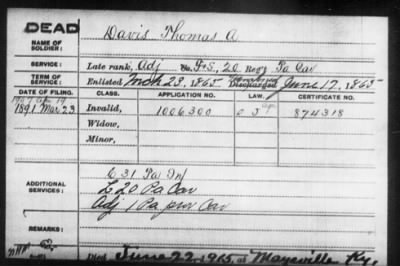 DEAD
NAME OF SOLDIER: Davis Thomas A.
SERVICE: Late rank, Adj Co. F & S, 20 Reg't Pa Cav
TERM OF SERVICE: Enlisted Mch 23, 1865 Discharged June 17, 1865
DATE OF FILING. CLASS. APPLICATION NO. LAW. CERTIFICATE NO.
1891 Mar 23 Invalid, 1006300 874318
Widow,
Minor,
ADDITIONAL SERVICES: C 31 Pa Inf
L 20 Pa Cav
Adj 1 Pa prov Cav
REMARKS:
Died June 22, 1915, at Mayesville Ky.